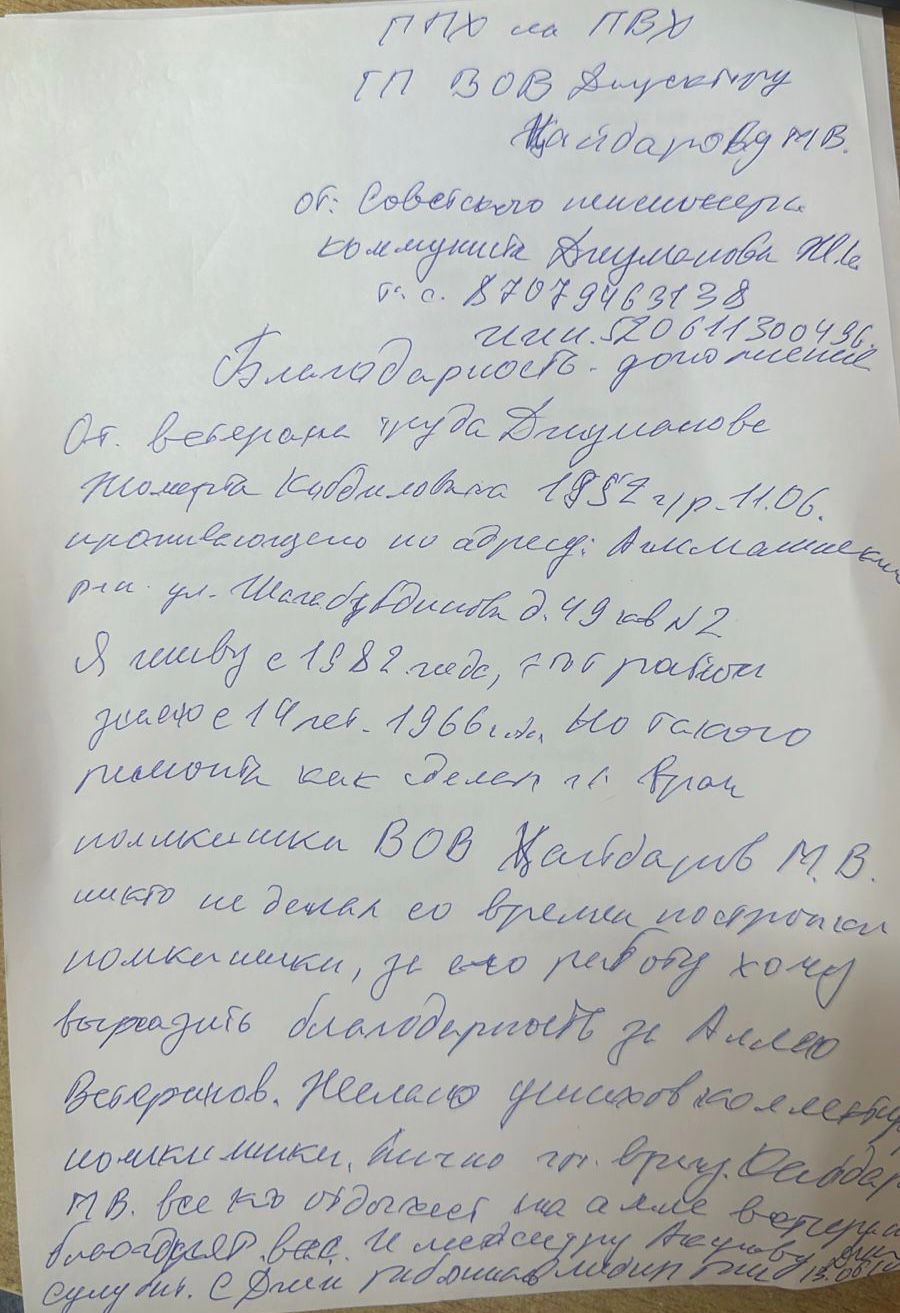 ППХ на ПВХ
ГП ВОВ Директору
Кайдарову М.В.
от: Советского пенсионера
коммуниста Джуманова Ж.К.
т. с. 87079463138
ИИН. 520611300496.
Благодарность - дополнение
От. ветерана труда Джуманова
Жомарта 1952 г/р. 11.06.
проживающего по адресу: Алмалинский
р-н. ул. Шагабутдинова д. 49 кв №2
Я живу с 1982 года, этот район
знаю с 14 лет. 1966 г. Но такого
ремонта как сделал гл врач
поликлиники ВОВ Кайдаров М.В.
никто не делал со времен постройки
поликлиники, за его работу хочу
выразить благодарность за Аллею
Ветеранов. Желаю успехов коллективу
поликлиники. Лично гл. врачу. Кайдар
М.В. все кто отдыхает на аллее ветеран
благодарят вас. И медсестру
Сулу С Днем 13.06